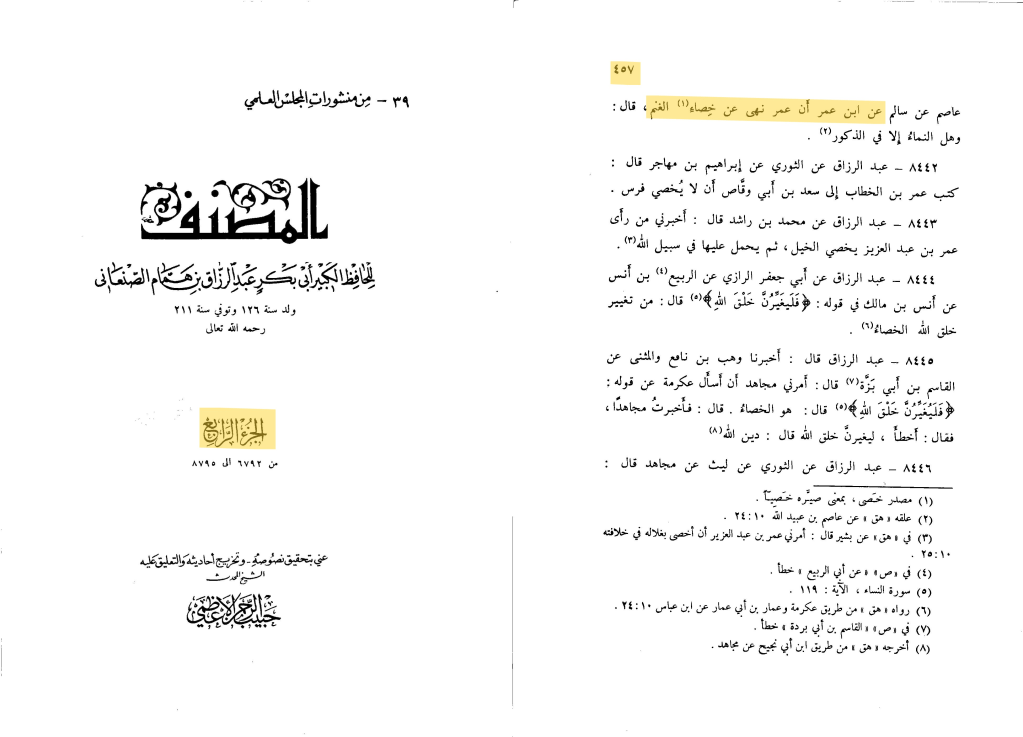 ٤٥٧
عاصم عن سالم عن ابن عمر أن عمر نهى عن خِصاء(١) الغنم، قال :
وهل النماءُ إلا في الذكور(٢) .
٨٤٤٢ – عبد الرزاق عن الثوري عن إبراهيم بن مهاجر قال :
كتب عمر بن الخطاب إلى سعد بن أبي وقّاص أن لا يُخصي فرس .
٨٤٤٣ – عبد الرزاق عن محمد بن راشد قال : أخبرني من رأى
عمر بن عبد العزيز يخصي الخيل، ثم يحمل عليها في سبيل الله(٣).
٨٤٤٤ – عبد الرزاق عن أبي جعفر الرازي عن الربيع(٤) بن أنس
عن أنس بن مالك في قوله : ﴿فَلَيُغَيِّرُنَّ خَلْقَ اللهِ﴾(٥) قال : من تغيير
خلق الله الخصاءُ(٦) .
٨٤٤٥ – عبد الرزاق قال : أخبرنا وهب بن نافع والمثنى عن
القاسم بن أبي بَزَّة(٧) قال : أمرني مجاهد أن أسأل عكرمة عن قوله :
﴿فَلَيُغَيِّرُنَّ خَلْقَ اللهِ﴾(٥) قال : هو الخصاءُ . قال : فأخبرتُ مجاهدًا ،
فقال : أخطأَ ، ليغيرنَّ خلق الله قال : دين الله(٨)
٨٤٤٦ – عبد الرزاق عن الثوري عن ليث عن مجاهد قال :
(١) مصدر خصى ، بمعنى صيّره خصيّاً .
(٢) علقه « هق » عن عاصم بن عبيد الله ١٠: ٢٤ .
(٣) في « هق » عن بشير قال : أمرني عمر بن عبد العزيز أن أخصى بغلاله في خلافته
١٠: ٢٥ .
(٤) في « ص » « عن أبي الربيع » خطأ .
(٥) سورة النساء ، الآية : ١١٩ .
(٦) رواه « هق » من طريق عكرمة وعمار بن أبي عمار عن ابن عباس ١٠: ٢٤ .
(٧) في « ص » « القاسم بن أبي بردة » خطأ .
(٨) أخرجه « هق » من طريق ابن أبي نجيح عن مجاهد .
٣٩ – من منشورات المجلس العلمي
المصنف
للحافظ الكبير أبي بكر عبد الرزاق بن همام الصنعاني
ولد سنة ١٢٦ وتوفي سنة ٢١١
رحمه الله تعالى
الجزء الرابع
من ٦٧٩٢ الى ٨٧٩٥
عني بتحقيق نصوصه - وتخريج أحاديثه والتعليق عليه
الشيخ المحدث
حبيب الرحمن الأعظمي